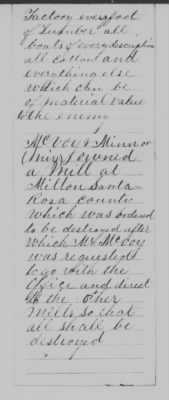 Factory every foot
of Lumber all
boats of every description
all Cotton and
everything else
which can be
of material value
to the enemy
McVoy & Minnor
owned
a Mill at
Milton Santa
Rosa County
which was ordered
to be destroyed after
which Mr McVoy
was requested
to go with the
Office and direct
to the other
Mills so that
all shall be
destroyed